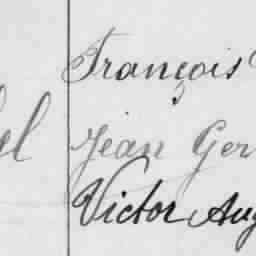 François
el Jean Ger
Victor Aug